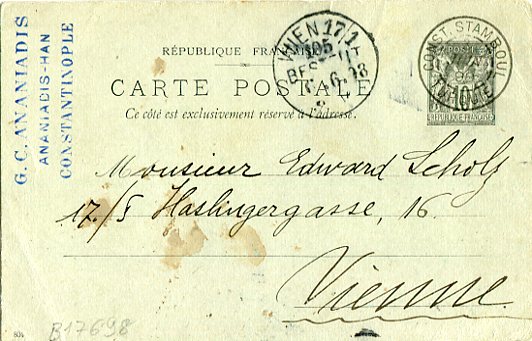 G. C. ANANIADIS
ANANIADIS-HAN
CONSTANTINOPLE
RÉPUBLIQUE FRANÇAISE
CARTE POSTALE
Ce côté est exclusivement réservé à l'adresse.
WIEN 17/1
BESTELLT
CONST. STAMBOUL
TURQUIE
POSTE
REPUBLIQUE FRANÇAISE
Monsieur Edward Scholz
17./I Haslingergasse, 16
Vienne
B17698